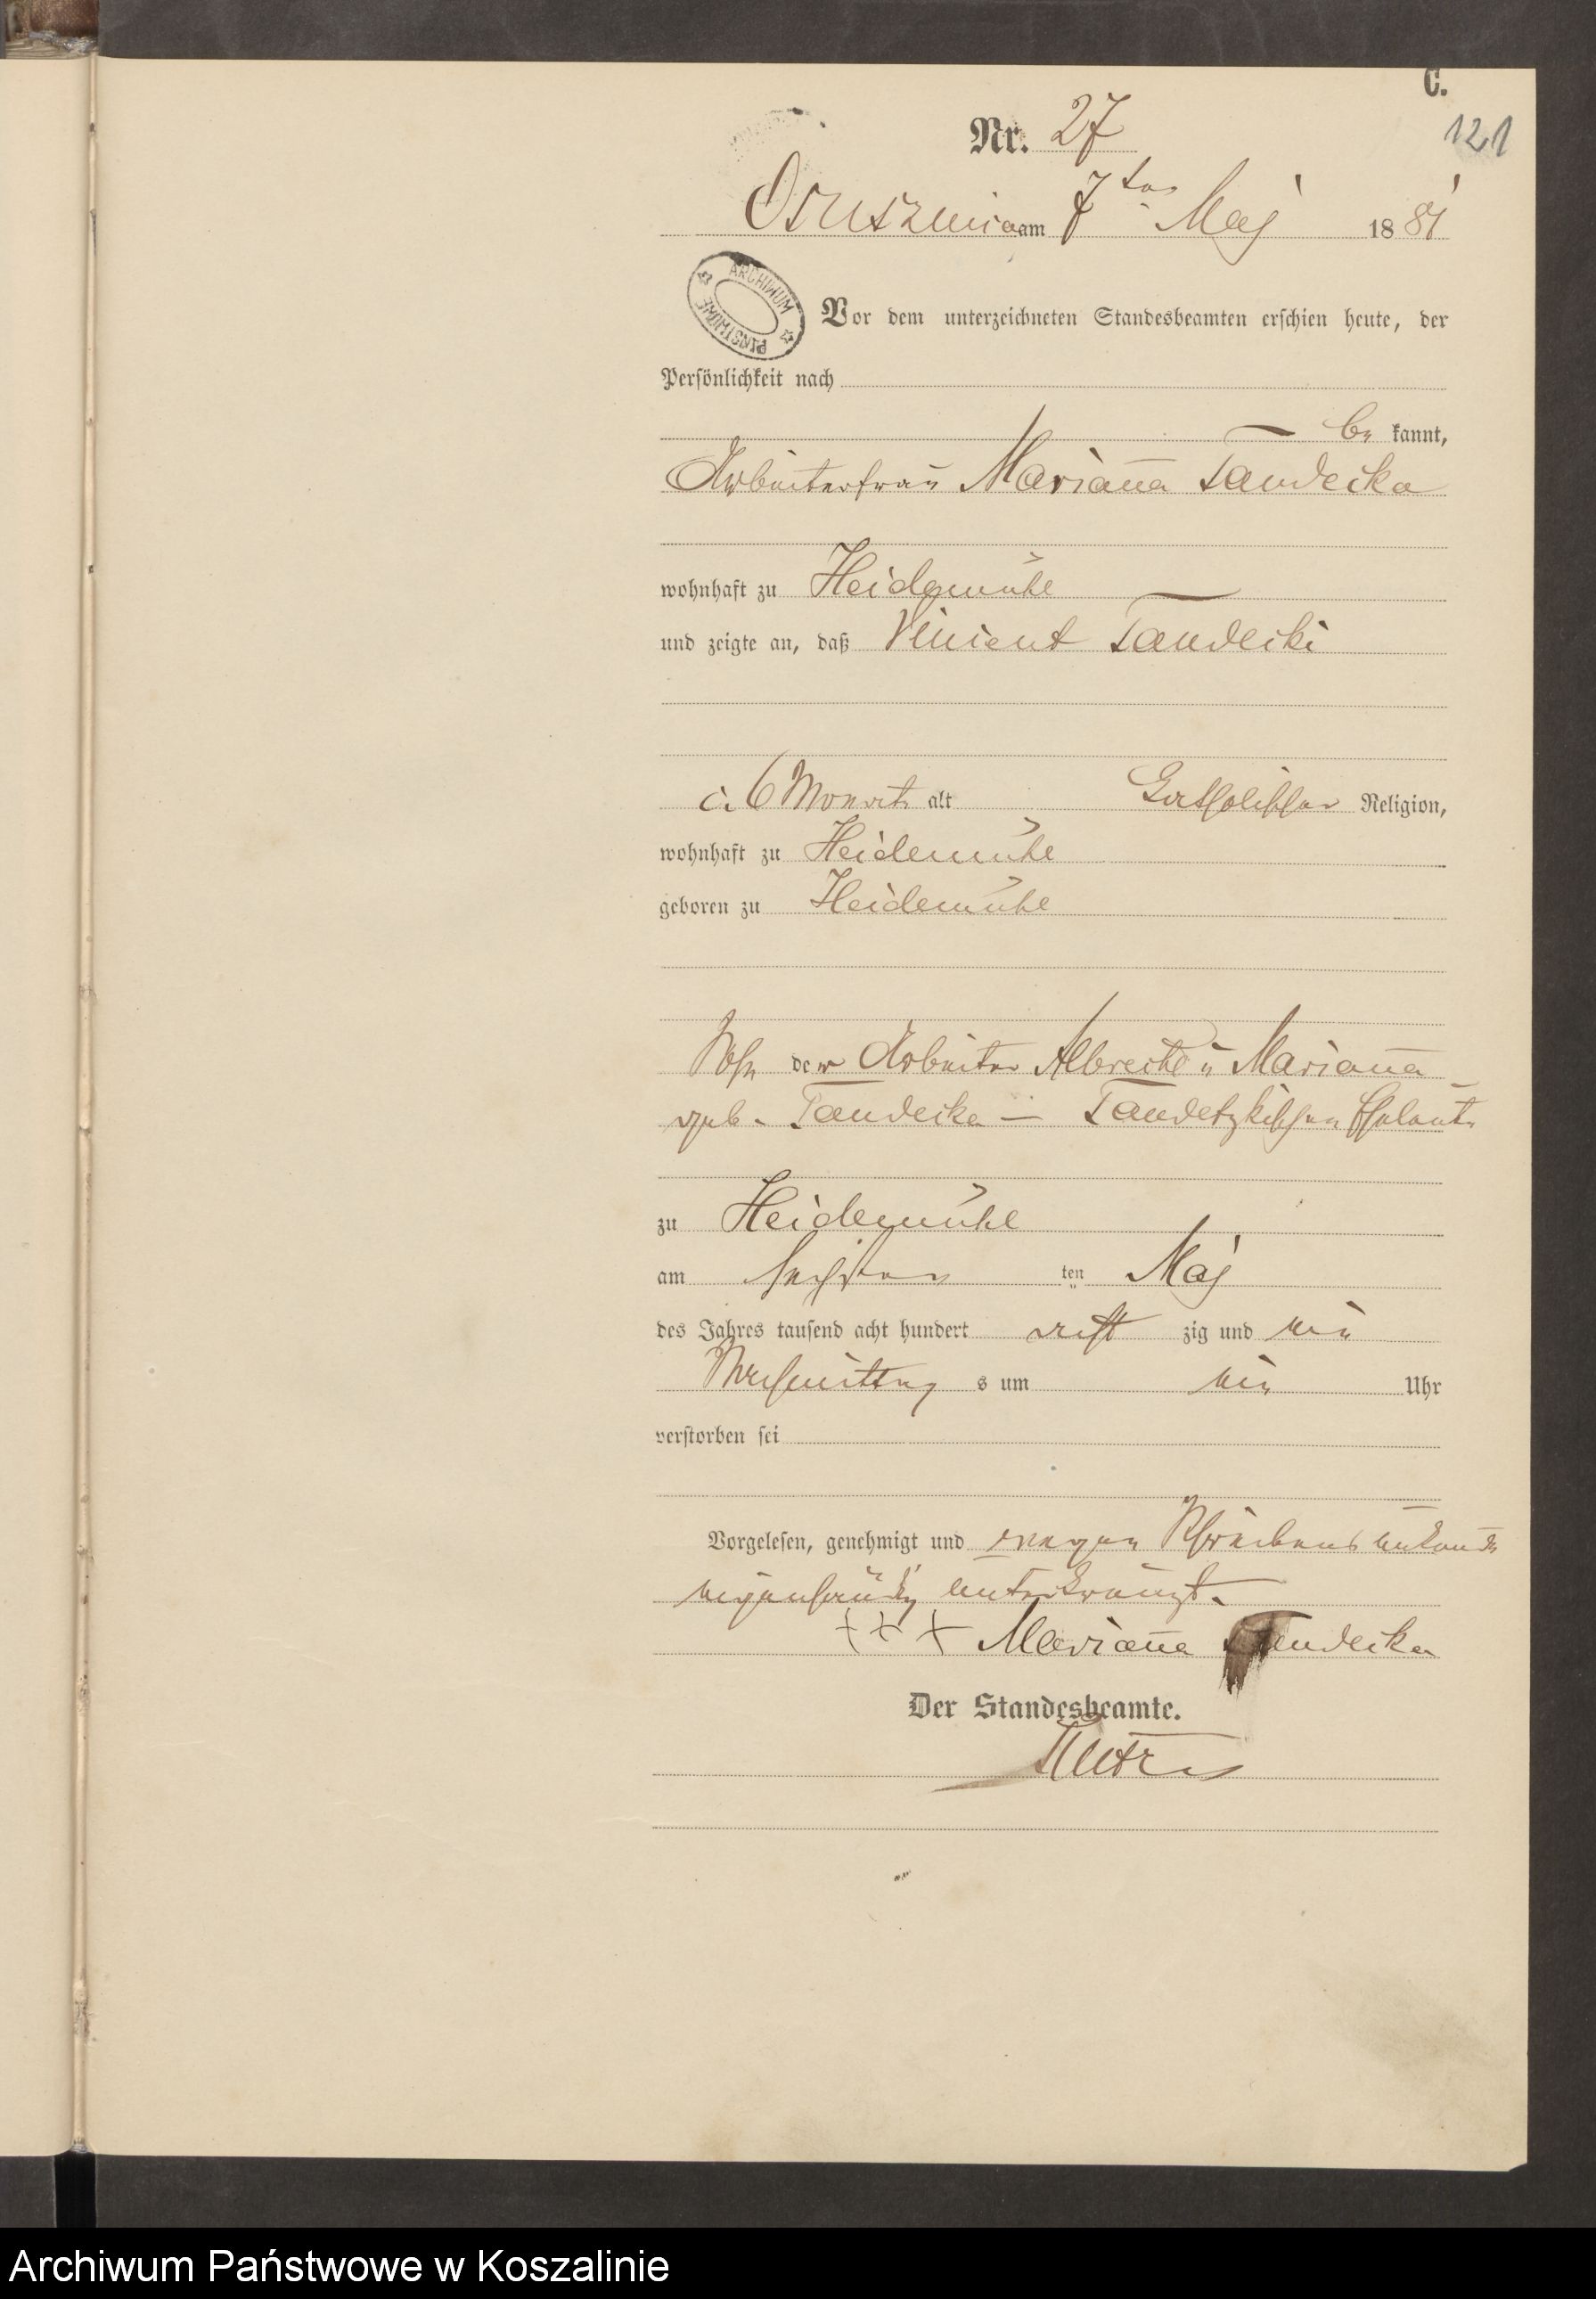 C.
121
Nr. 27
Osusznica am 7ten Maj 1881
ARCHIWUM PAŃSTWOWE
Vor dem unterzeichneten Standesbeamten erschien heute, der
Persönlichkeit nach
be kannt,
Arbeiterfrau Marianna Tandecka
wohnhaft zu Heidemühl
und zeigte an, daß Vincent Tandecki
c. 6 Monate alt katholischer Religion,
wohnhaft zu Heidemühl
geboren zu Heidemühl
Sohn der Arbeiter Albrecht u Marianna
geb. Tandecka — Tandetzkischen Eheleute
zu Heidemühl
am sechsten ten Maj
des Jahres tausend acht hundert acht zig und ein
Nachmittag s um ein Uhr
verstorben sei
Vorgelesen, genehmigt und wegen Schreibens unkunde
eigenhändig unterkreuzt.
+ + + Marianna Tandecka
Der Standesbeamte.
Archiwum Państwowe w Koszalinie